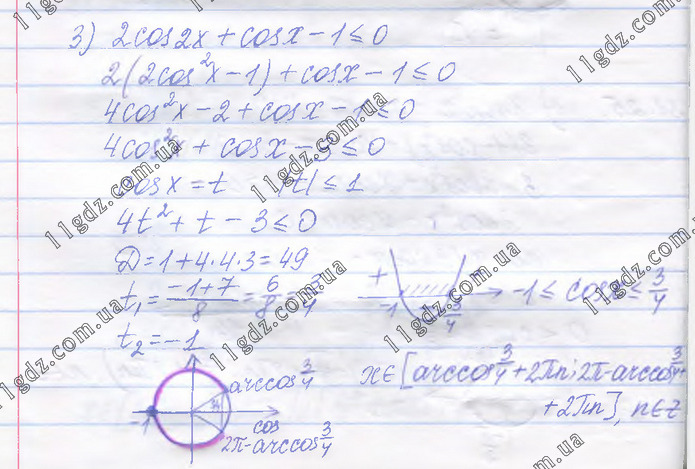 3) 2cos2x + cosx - 1 ≤ 0
2(2cos²x - 1) + cosx - 1 ≤ 0
4cos²x - 2 + cosx - 1 ≤ 0
4cos²x + cosx - 3 ≤ 0
cosx = t |t| ≤ 1
4t² + t - 3 ≤ 0
D = 1 + 4·4·3 = 49
t₁ = (-1+7)/8 = 6/8 = 3/4
+ -1 3/4 -1 ≤ cosx ≤ 3/4
t₂ = -1
arccos 3/4
-1 3/4 cos
2π - arccos 3/4
x ∈ [arccos 3/4 + 2πn; 2π - arccos 3/4 +
+ 2πn], n ∈ Z
11gdz.com.ua
11gdz.com.ua
11gdz.com.ua
11gdz.com.ua
11gdz.com.ua
11gdz.com.ua
11gdz.com.ua